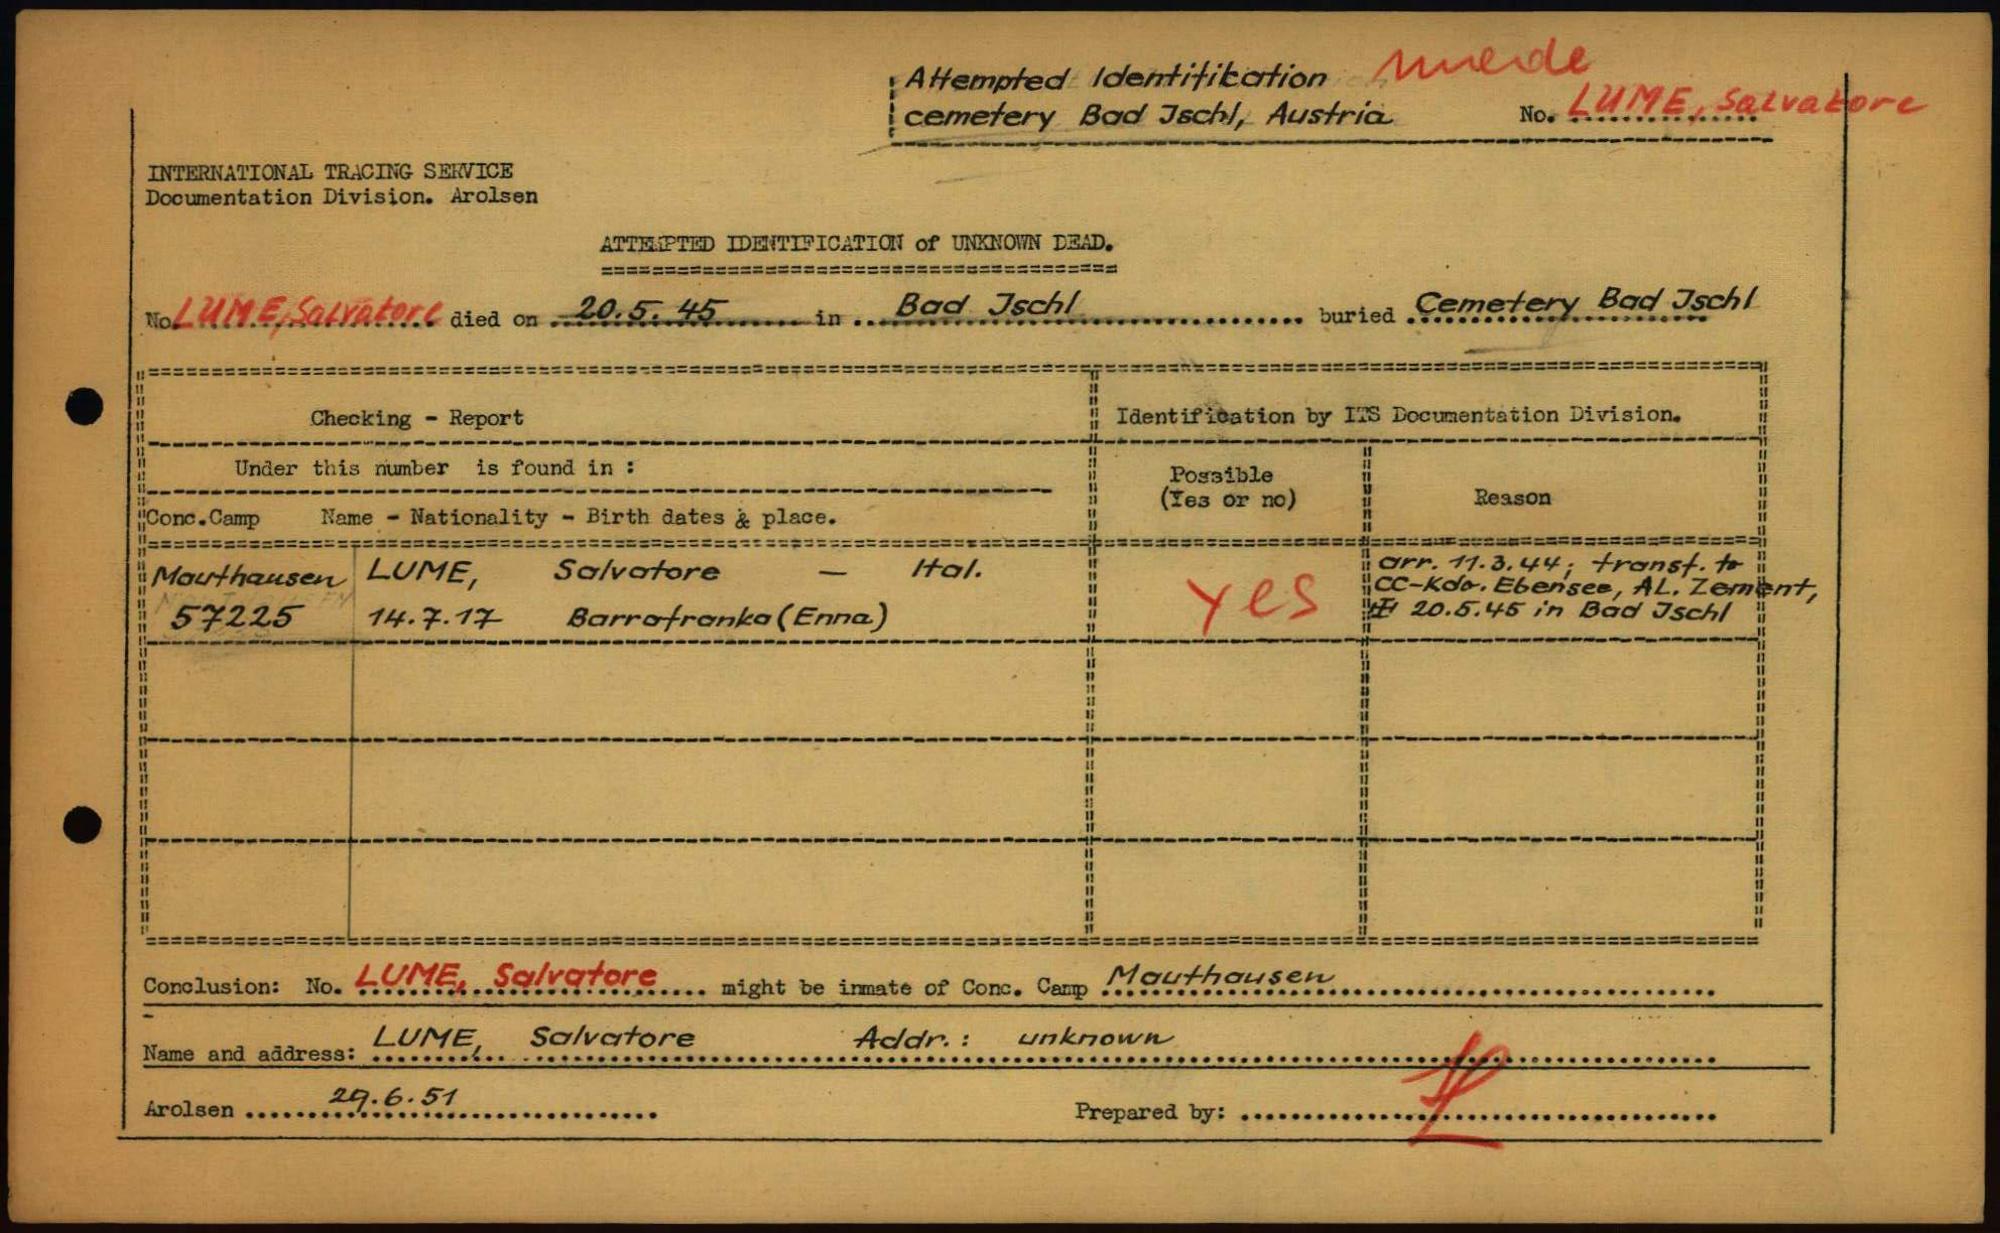 Attempted Identifikation
cemetery Bad Ischl, Austria No. LUME, Salvatore
INTERNATIONAL TRACING SERVICE
Documentation Division. Arolsen
ATTEMPTED IDENTIFICATION of UNKNOWN DEAD.
No. LUME, Salvatore died on 20.5.45 in Bad Ischl buried Cemetery Bad Ischl
Checking - Report
Identification by ITS Documentation Division.
Under this number is found in :
Possible
(Yes or no)
Reason
Conc.Camp Name - Nationality - Birth dates & place.
Mauthausen LUME, Salvatore — Ital.
57225 14.7.17 Barrafranka (Enna)
yes
arr. 11.3.44; transf. to
CC-Kdo. Ebensee, AL. Zement,
20.5.45 in Bad Ischl
Conclusion: No. LUME, Salvatore might be inmate of Conc. Camp Mauthausen
Name and address: LUME, Salvatore Addr.: unknown
Arolsen 29.6.51 Prepared by: